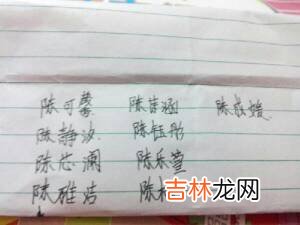 陈可馨 陈诗涵 陈辰媛
陈静汝 陈钰彤
陈芯澜 陈乐萱
陈雅洁 陈
吉林龙网